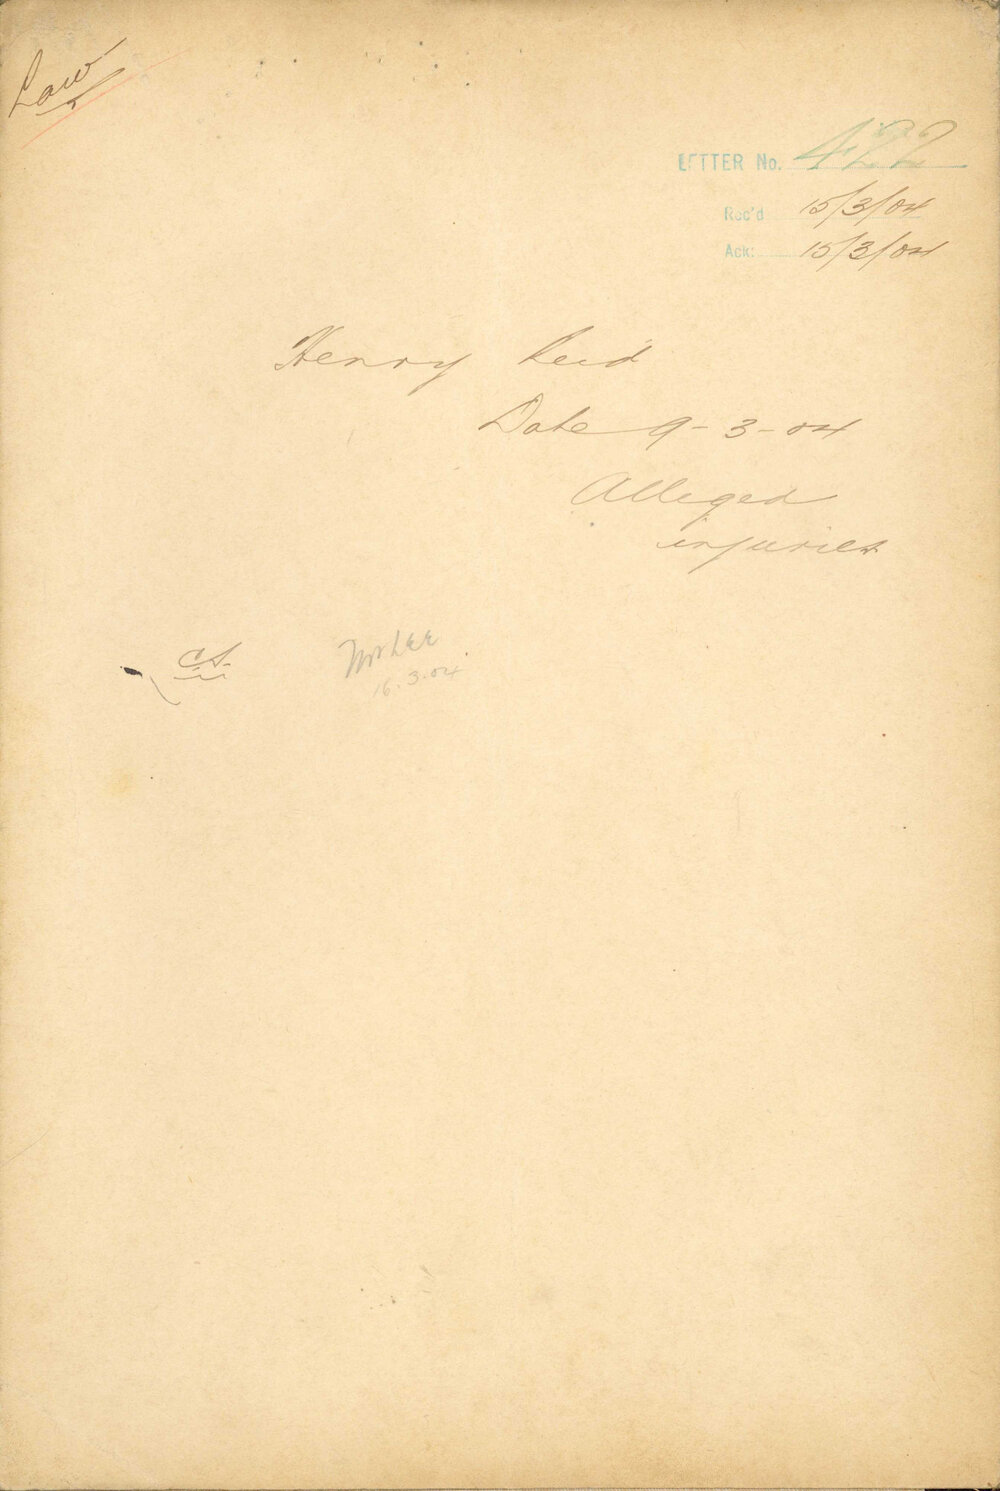 Law
LETTER No. 422
Rec'd 15/3/04
Ack: 15/3/04
Henry Reid
Date 9-3-04
Alleged
injuries
16.3.04